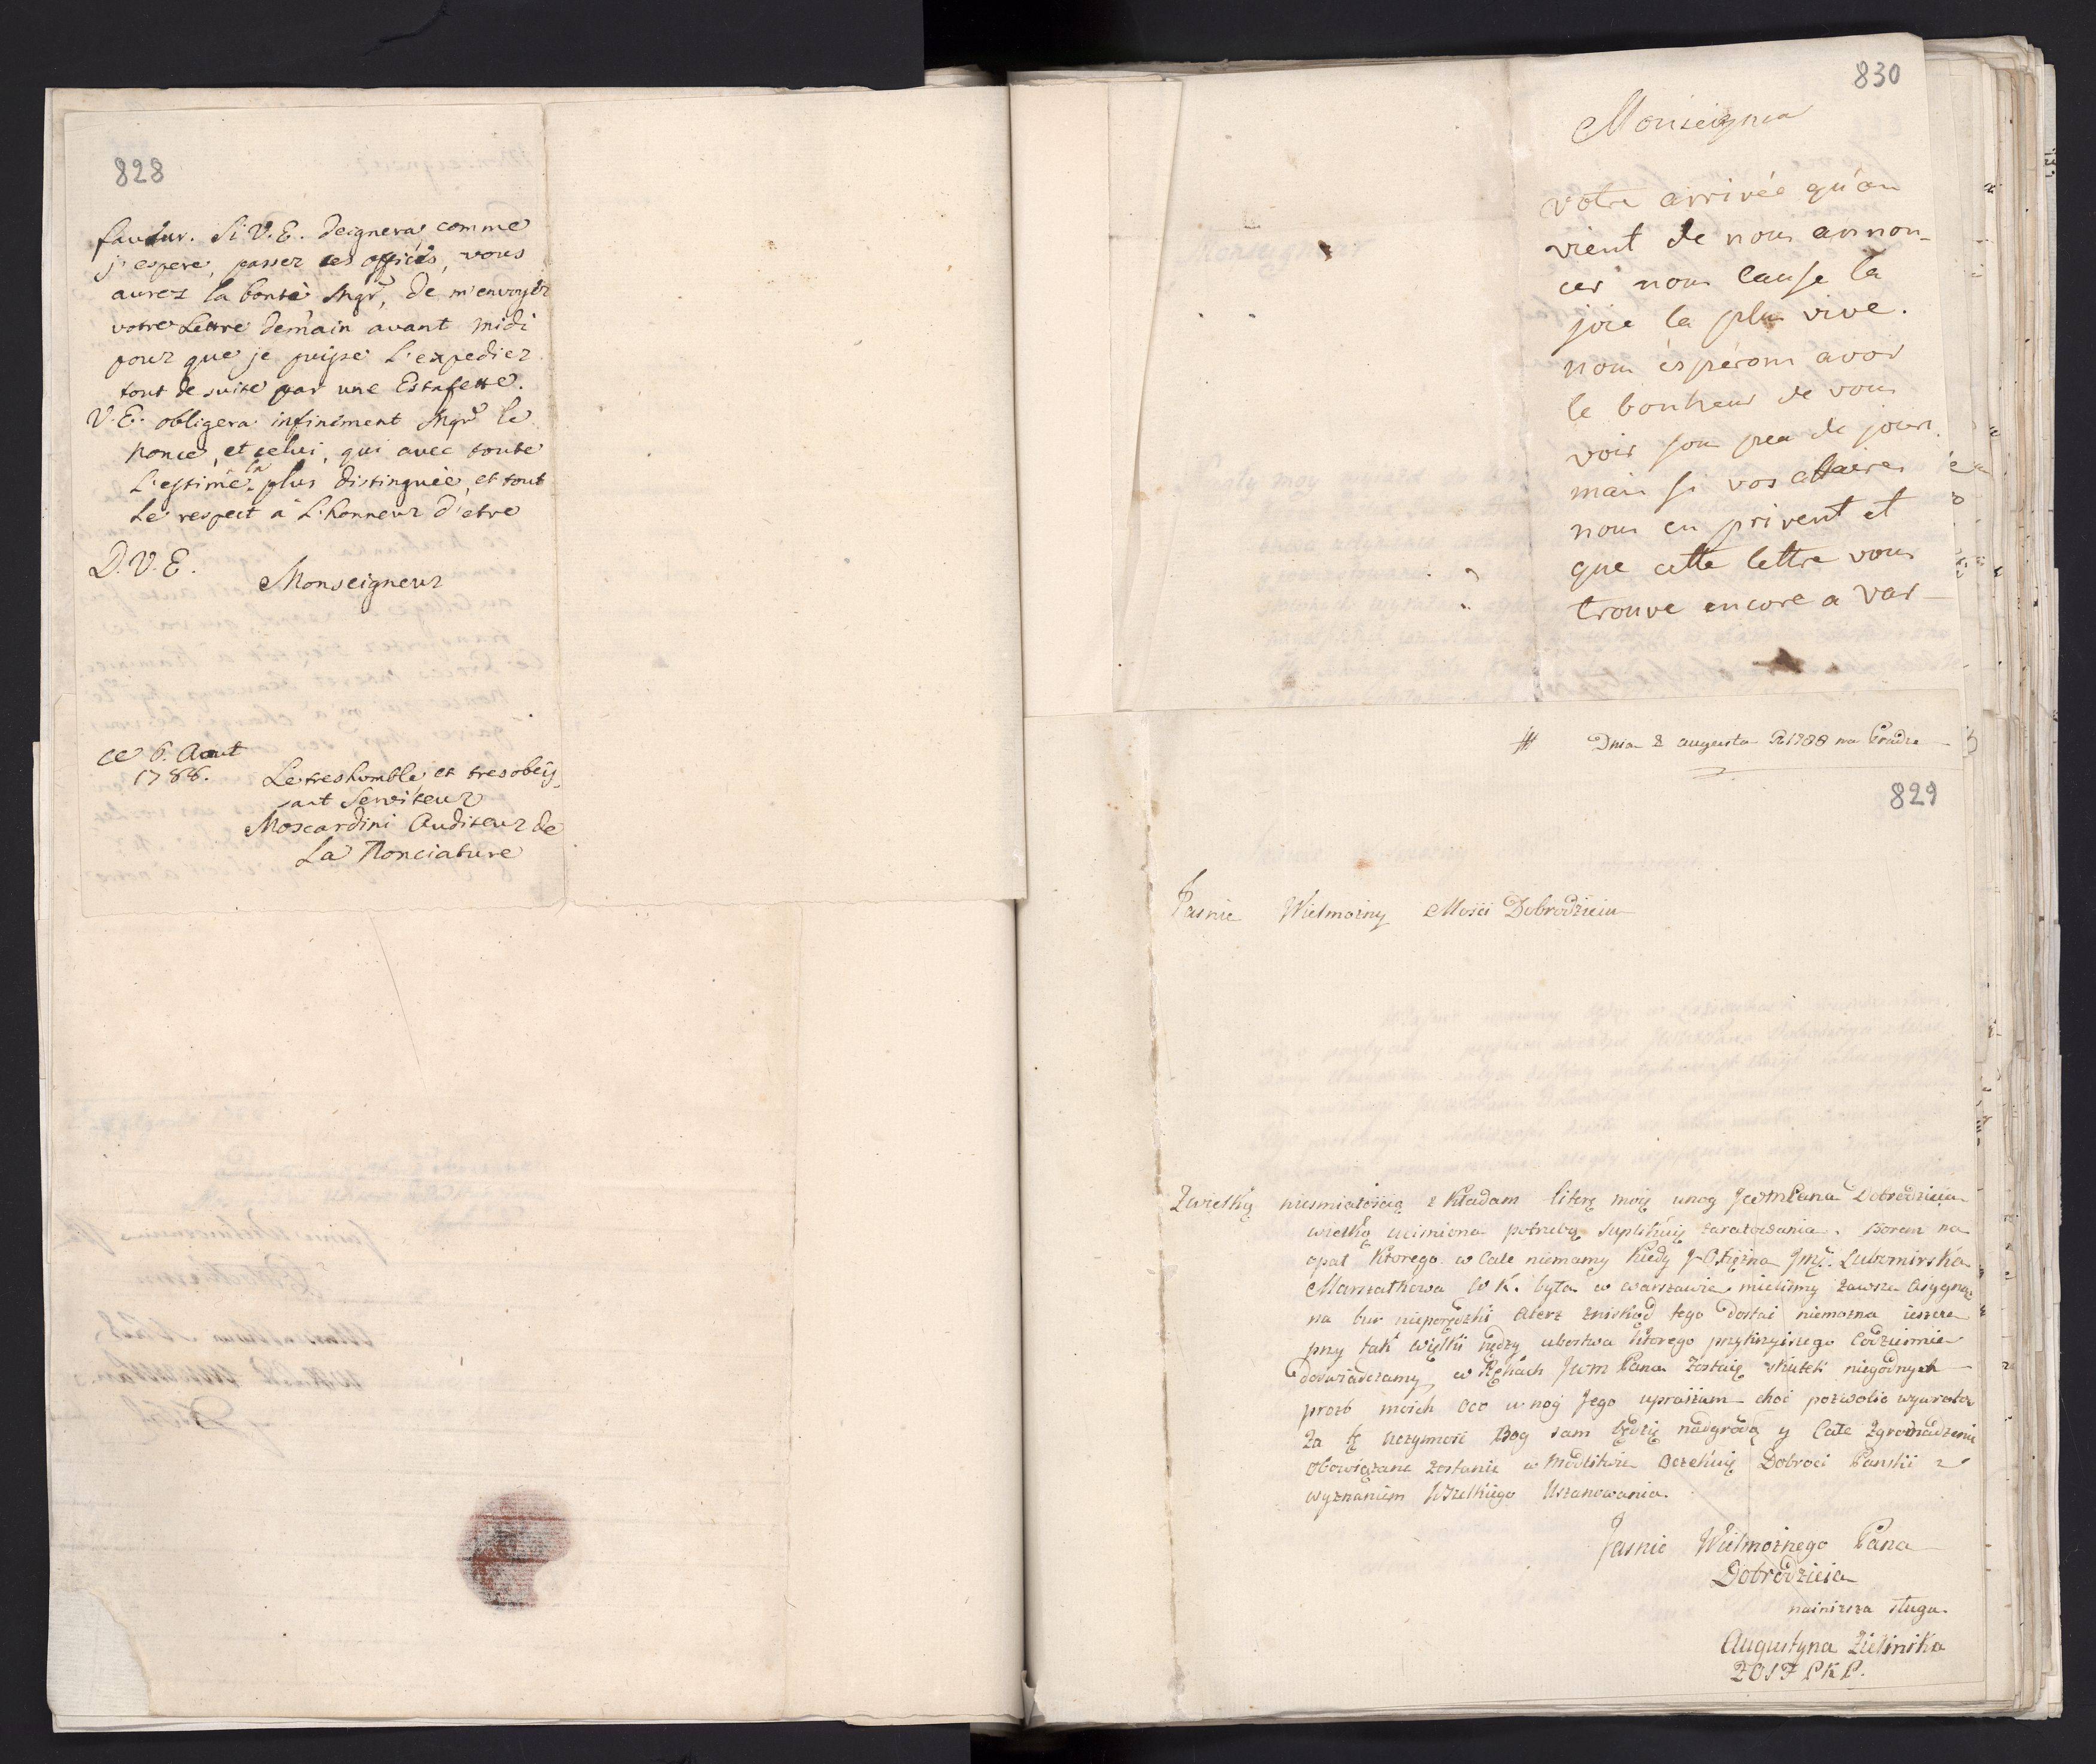 828
faveur. Si V. E. deignera comme
j'espere, passer ces offices, vous
aurez la bonté Mgr, de m'envoyer
votre Lettre demain avant midi
pour que je puisse l'expedier
tout de suite par une Estafette.
V. E. obligera infiniment Mgr le
Nonce, et celui, qui avec toute
L'estime la plus distinguèe, et tout
Le respect à L'honneur d'etre
D. V. E.
Monseigneur
ce 6. Aout
1788.
Le tres humble et tres obeis
sant Serviteur
Moscardini Auditeur de
La Nonciature
830
Monseigneur
votre arrivée qu'on
vient de nous annon-
cer nous cause la
joie la plus vive.
nous éspérons avoir
le bonheur de vous
voir sou peu de jours
mais si vos affaires
nous en privent et
que cette lettre vous
trouve encore a var-
Dnia 2 augusta R 1788 na Pradze
829
Jasnie Wielmożny Mości Dobrodzieiu
Zwielką niesmiałością składam literę moię unog JWmPana Dobrodzieia
wielką ucisniona potrzebą suplikuię zaratowania. Borem na
opał Ktorego w Cale niemamy kiedy J O Xiężna Jmć. Lubomirska
Marszałkowa W K. była w warszawie mielismy zawsze Asygnac
na bur nieporędzki Teraz zniskąd tego Dostać niemozna ieszcze
przy tak wielki nędzy ubostwa ktorego przykrzyiszego Codziennie
Doswiadczamy w Rękach JWm Pana zostaię skutek niegodnych
prozb moich oco u nog Jego upraszam choć pozwolić wywrotow
Za tę uczynność Bog sam będzię nadgrodą y Całe Zgromadzenie
obowiązane zostanie w modlitwie Oczekuię Dobroci Panskii z
wyznaniem Wszelkiego Uszanowania.
Jasnie Wielmożnego Pana
Dobrodzieia
nainizsza sługa
Augustyna Zielinska